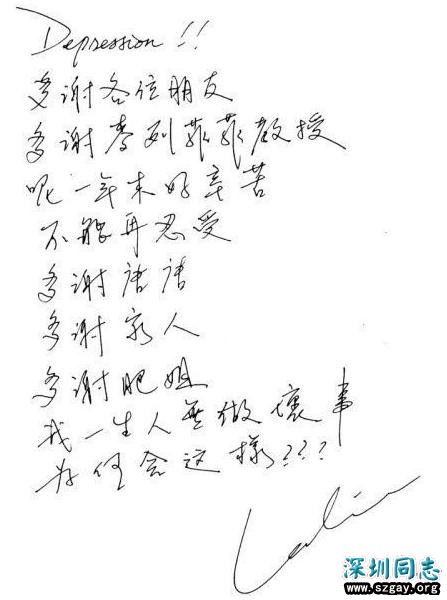 Depression!!
多谢各位朋友
多谢麥列菲菲教授
呢一年来好辛苦
不能再忍受
多谢唐唐
多谢家人
多谢肥姐
我一生人無做壞事
为何会这樣???
Leslie
深圳同志
www.szgay.org